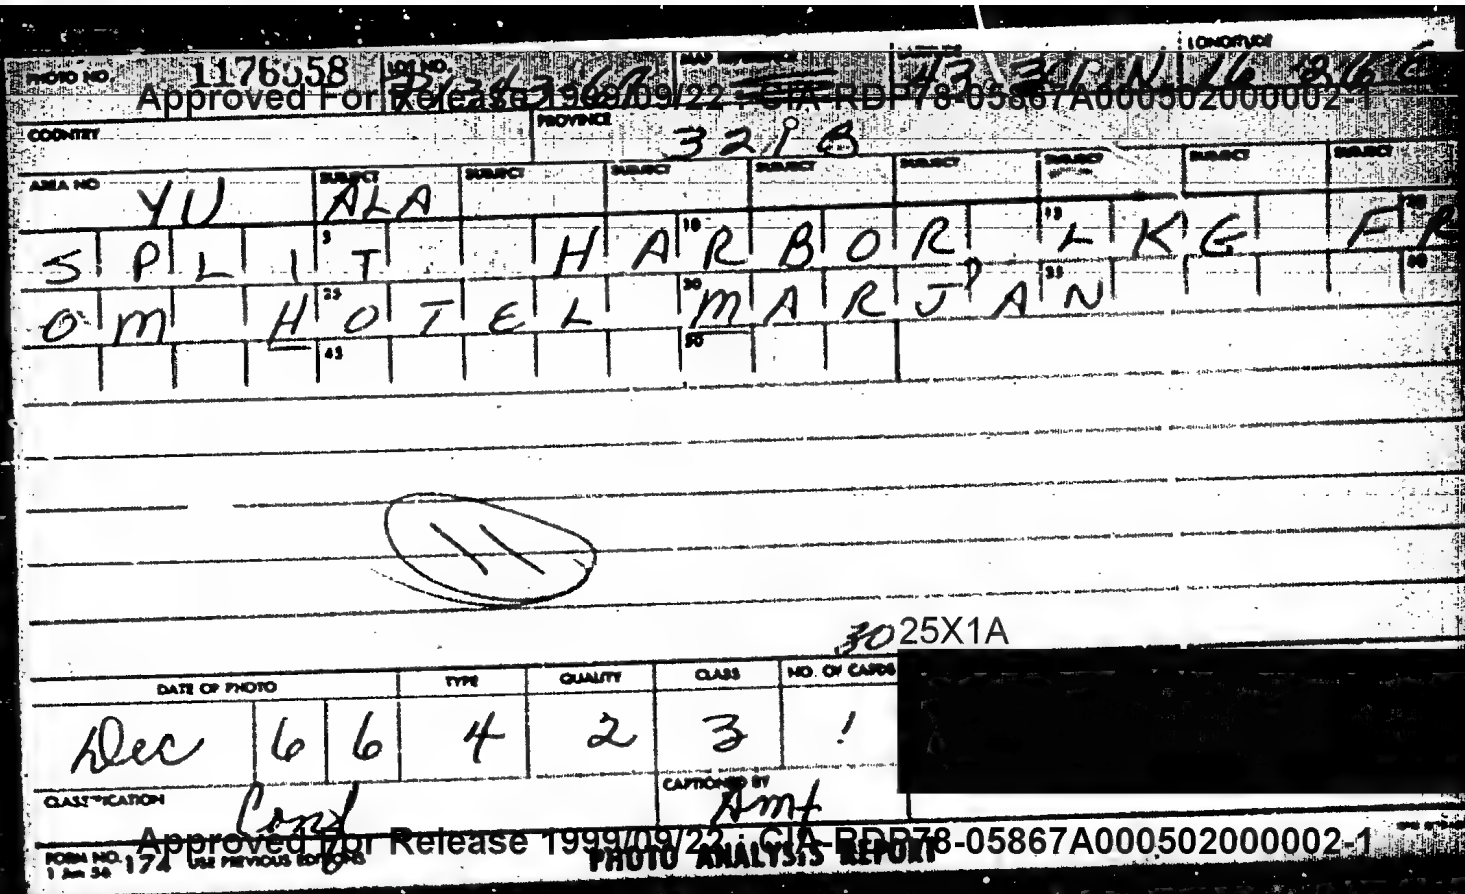 PHOTO NO. 1176558 LOT NO. MAP REFERENCE LONGITUDE
43 31 N 16 26 E
Approved For Release 1999/09/22 : CIA-RDP78-05867A000502000002-1
COUNTRY PROVINCE
AREA NO YU SUBJECT ALA SUBJECT SUBJECT SUBJECT SUBJECT SUBJECT SUBJECT SUBJECT
SPLIT HARBOR LKG FR
OM HOTEL MARJAN
45 50
11
30 25X1A
DATE OF PHOTO TYPE QUALITY CLASS NO. OF CARDS
Dec 66 4 2 3 1
CLASSIFICATION Conf CAPTIONED BY
Approved For Release 1999/09/22 : CIA-RDP78-05867A000502000002-1
FORM NO. 174 USE PREVIOUS EDITIONS PHOTO ANALYSIS REPORT
1 Jan 56